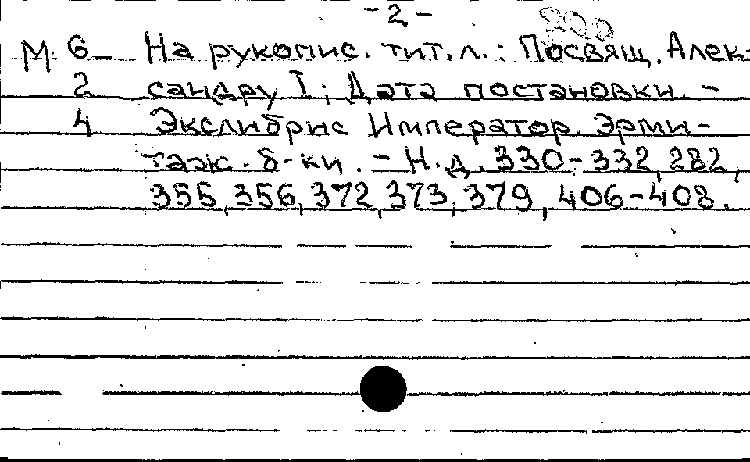 - 2 -
М 6 - На рукопис. тит. л.: Посвящ. Алек-
2 сандру I; Дата постановки. -
4 Экслибрис Император. Эрми-
таж. б-ки. - Н. д. 330-332, 282,
355, 356, 372, 373, 379, 406-408.